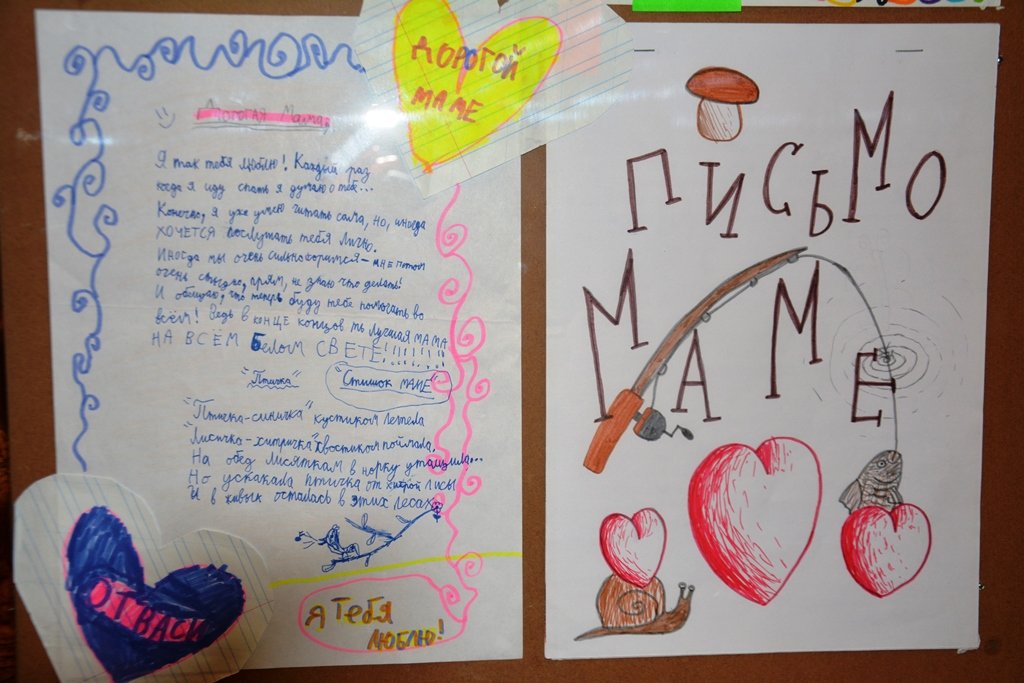 ДОРОГОЙ
МАМЕ
Дорогая Мама,
Я так тебя люблю! Каждый раз
когда я иду спать я думаю о тебе...
Конечно, я уже умею читать сама, но, иногда
ХОЧЕТСЯ послушать тебя лично.
Иногда мы очень сильно соримся - мне потом
очень стыдно, прям, не знаю что делать!
И обещаю, что теперь буду тебе помогать во
всём! Ведь в конце концов ты лучшая МАМА
НА ВСЁМ Белом СВЕТЕ!!!!!!!!
"Птичка"
"Стишок МАМЕ"
"Птичка-синичка" кустиком летела
"Лисичка-хитричка" хвостиком поймала,
На обед лисяткам в норку утащила...
Но ускакала птичка от хитрой лисы
И в живых осталась в этих лесах
ОТ ВАСИ
Я Тебя
ЛЮБЛЮ!
ПИСЬМО
МАМЕ